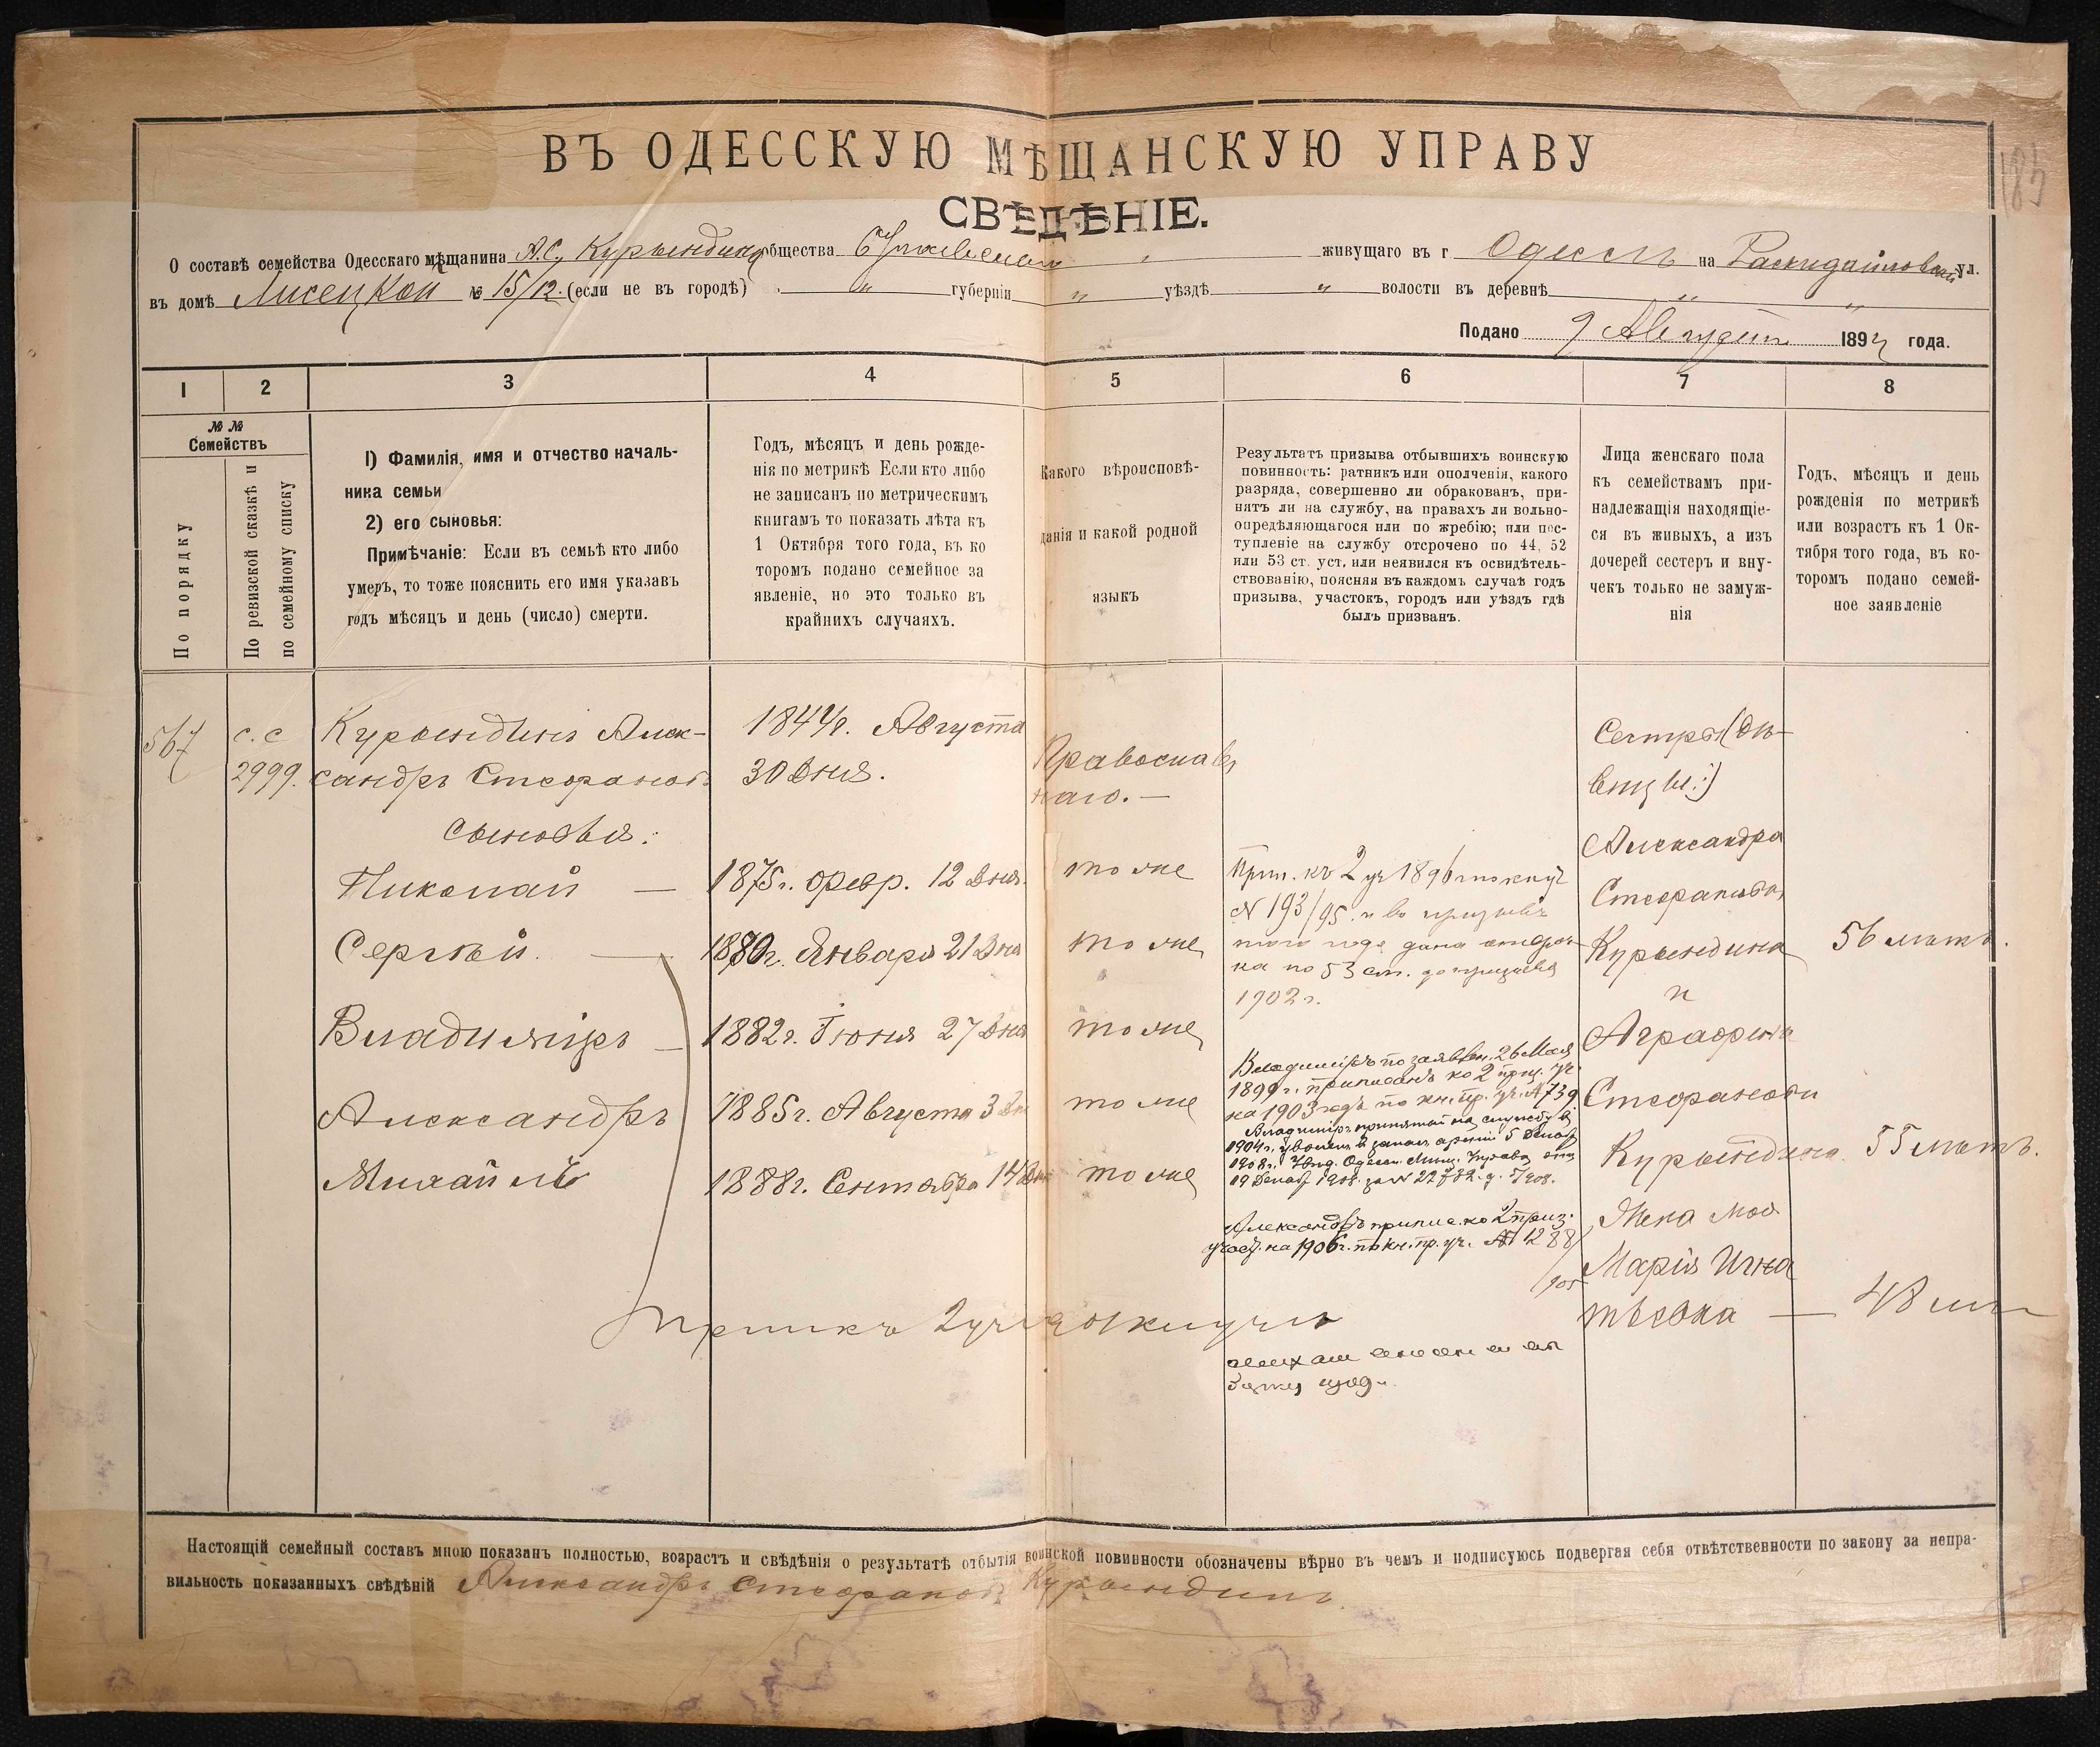 183
ВЪ ОДЕССКУЮ МѢЩАНСКУЮ УПРАВУ
СВѢДѢНІЕ.
О составѣ семейства Одесскаго мѣщанина А.С. Курындина общества живущаго въ г Одессѣ на Раскидайловской ул.
въ домѣ Лисецкой № 15/12. (если не въ городѣ) " губерніи " уѣздѣ " волости въ деревнѣ " "
Подано 9 Августа 189 года.
1 2 3 4 5 6 7 8
№ № Семействъ
По порядку
По ревизской сказкѣ и
по семейному списку
1) Фамилія, имя и отчество началь-
ника семьи
2) его сыновья:
Примѣчаніе: Если въ семьѣ кто либо
умеръ, то тоже пояснить его имя указавъ
годъ мѣсяцъ и день (число) смерти.
Годъ, мѣсяцъ и день рожде-
нія по метрикѣ Если кто либо
не записанъ по метрическимъ
книгамъ то показать лѣта къ
1 Октября того года, въ ко
торомъ подано семейное за
явленіе, но это только въ
крайнихъ случаяхъ.
Какого вѣроисповѣ-
данія и какой родной
языкъ
Результатъ призыва отбывшихъ воинскую
повинность: ратникъ или ополченія, какого
разряда, совершенно ли обракованъ, при-
нятъ ли на службу, на правахъ ли вольно-
опредѣляющагося или по жребію; или пос-
тупленіе на службу отсрочено по 44, 52
или 53 ст. уст. или неявился къ освидѣтель-
ствованію, поясняя въ каждомъ случаѣ годъ
призыва, участокъ, городъ или уѣздъ гдѣ
былъ призванъ.
Лица женскаго пола
къ семействамъ при-
надлежащія находящіе-
ся въ живыхъ, а изъ
дочерей сестеръ и вну-
чекъ только не замуж-
нія
Годъ, мѣсяцъ и день
рожденія по метрикѣ
или возрастъ къ 1 Ок-
тября того года, въ ко-
торомъ подано семей-
ное заявленіе
567
с. с
2999.
Курындинъ Алек-
сандръ Стефановъ
сыновья:
Николай —
Сергѣй. —
Владиміръ —
Александръ
Михаилъ
1844г. Августа
30 дня.
1875г. февр. 12 дня.
1880г. Января 21 дня
1882г. Іюня 27 дня
1885г. Августа 3 дня
1888г. Сентября 14 дня
Православ
наго. —
тоже
тоже
тоже
тоже
тоже
Прип. къ 2 уч 1896 по кн уч
N 193/95. и въ призывѣ
того года дана отсроч-
ка по 53 ст. до призыва
1902 г.
Владиміръ по заявлен. 26 Мая
1899 г. приписанъ ко 2 приз. уч.
на 1903 годъ по кн. пр. уч. № 739
Владиміръ принятый на службу въ
1904 г. уволенъ въ запасъ арміи 5 Декаб
1908 г. Увед. Одесск. Мѣщ. Управа отъ
19 Декаб. 1908. за №
Александръ припис. ко 2 приз.
участ. на 1906г. по кн. пр. уч. № 1288/
905
Припис къ 2 уч
Сестры (дѣ-
вицы:)
Александра
Стефанова
Курындина
и
Аграфена
Стефанова
Курындина
Жена моя
Марія Игна
тьевна —
56 лѣтъ.
55 лѣтъ.
48 лѣт
Настоящій семейный составъ мною показанъ полностью, возрастъ и свѣдѣнія о результатѣ отбытія воинской повинности обозначены вѣрно въ чемъ и подписуюсь подвергая себя отвѣтственности по закону за непра-
вильность показанныхъ свѣдѣній Александръ Стефановъ Курындинъ.